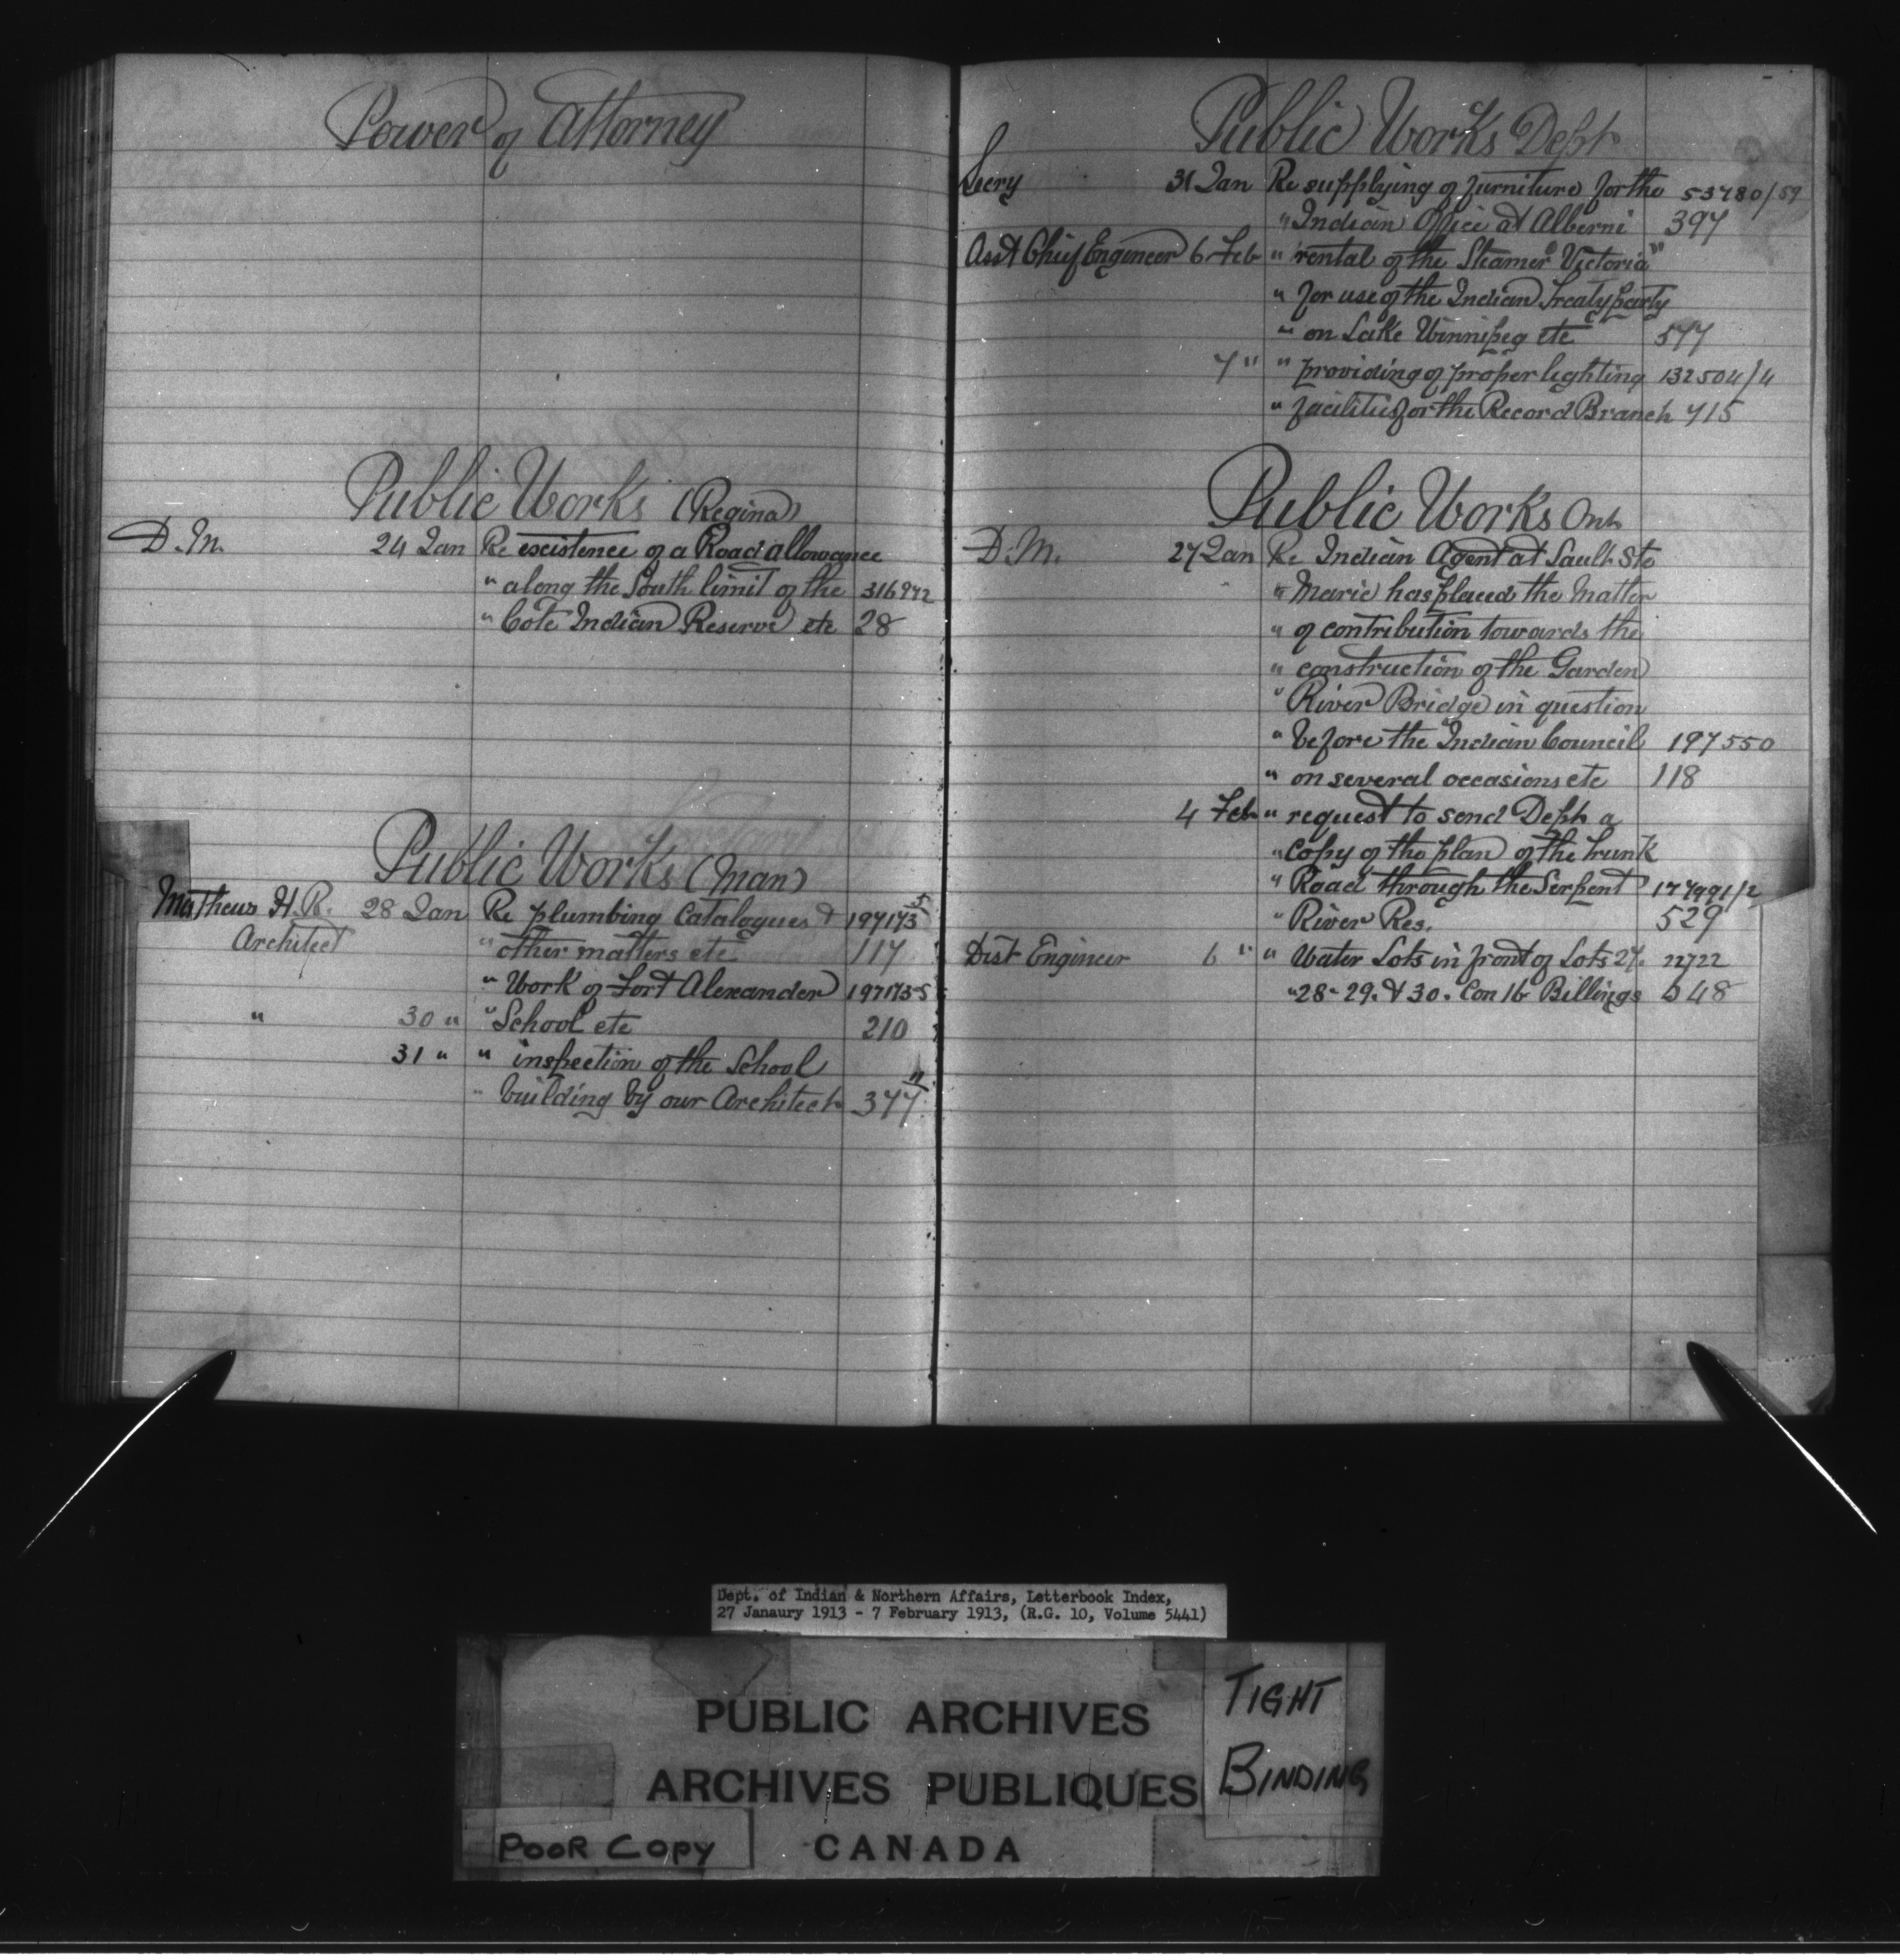 Power of Attorney
Public Works (Regina)
D.M. 24 Jan Re existence of a Road allowance
" along the South limit of the 316972
" Cote Indian Reserve etc 28
Public Works (Man)
Matheus H.R. 28 Jan Re plumbing Catalogues & 197173/5
Architect " other matters etc 117
" Work of Fort Alexander 197173-5
" 30 " " School etc 210
31 " " inspection of the School "
" building by our Architect 377
Public Works Dept
Secry 31 Jan Re supplying of furniture for the 53780/59
" Indian Office at Alberni 397
Asst Chief Engineer 6 Feb " rental of the Steamer "Victoria"
" for use of the Indian Treaty party
" on Lake Winnipeg etc 577
7 " " providing of proper lighting 132504/4
" facilities for the Record Branch 715
Public Works Ont
D.M. 27 Jan Re Indian Agent at Sault Ste
" Marie has placed the Matter
" of contribution towards the
" construction of the Garden
" River Bridge in question
" before the Indian Council 197550
" on several occasions etc 118
4 Feb " request to send Dept a
" Copy of the plan of the trunk
" Road through the Serpent 177991/2
" River Res. 529
Dist Engineer 6 " " Water Lots in front of Lots 27. 22722
" 28-29. & 30. Con 16 Billings 648
Dept. of Indian & Northern Affairs, Letterbook Index,
27 Janaury 1913 - 7 February 1913, (R.G. 10, Volume 5441)
PUBLIC ARCHIVES
ARCHIVES PUBLIQUES
CANADA
TIGHT
BINDING
POOR COPY